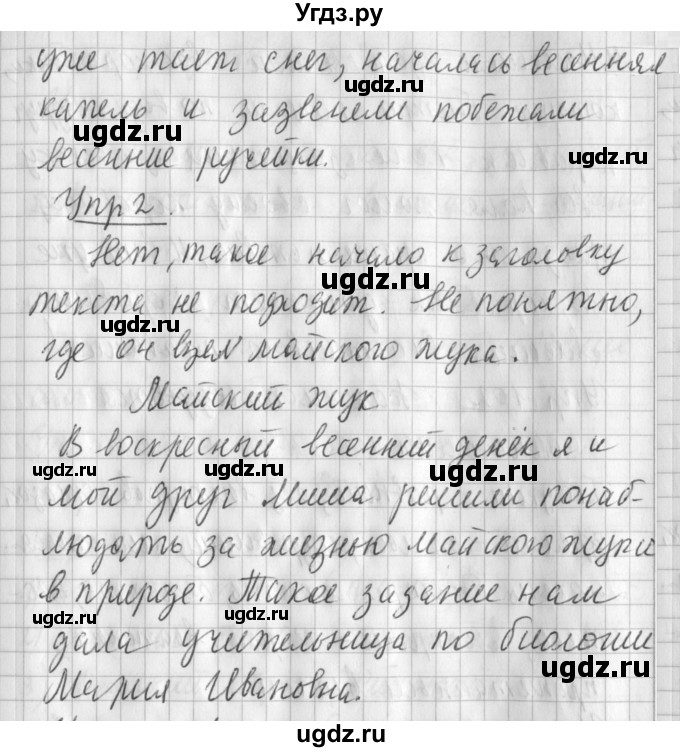 Угдз.ру
уже тает снег, началась весенняя
ugdz.ru
капель и зазвенели побежали
ugdz.ru ugdz.ru
весенние ручейки.
ugdz.ru
Упр 2.
Нет, такое начало к заголовку
ugdz.ru
текста не подходит. Не понятно,
ugdz.ru
где он взял майского жука.
Майский жук
В воскресный весенний денёк я и
ugdz.ru ugdz.ru ugdz.ru
мой друг Миша решили понаб-
людать за жизнью майского жука
в природе. Такое задание нам
ugdz.ru ugdz.ru
дала учительница по биологии
ugdz.ru
Мария Ивановна.
ugdz.ru